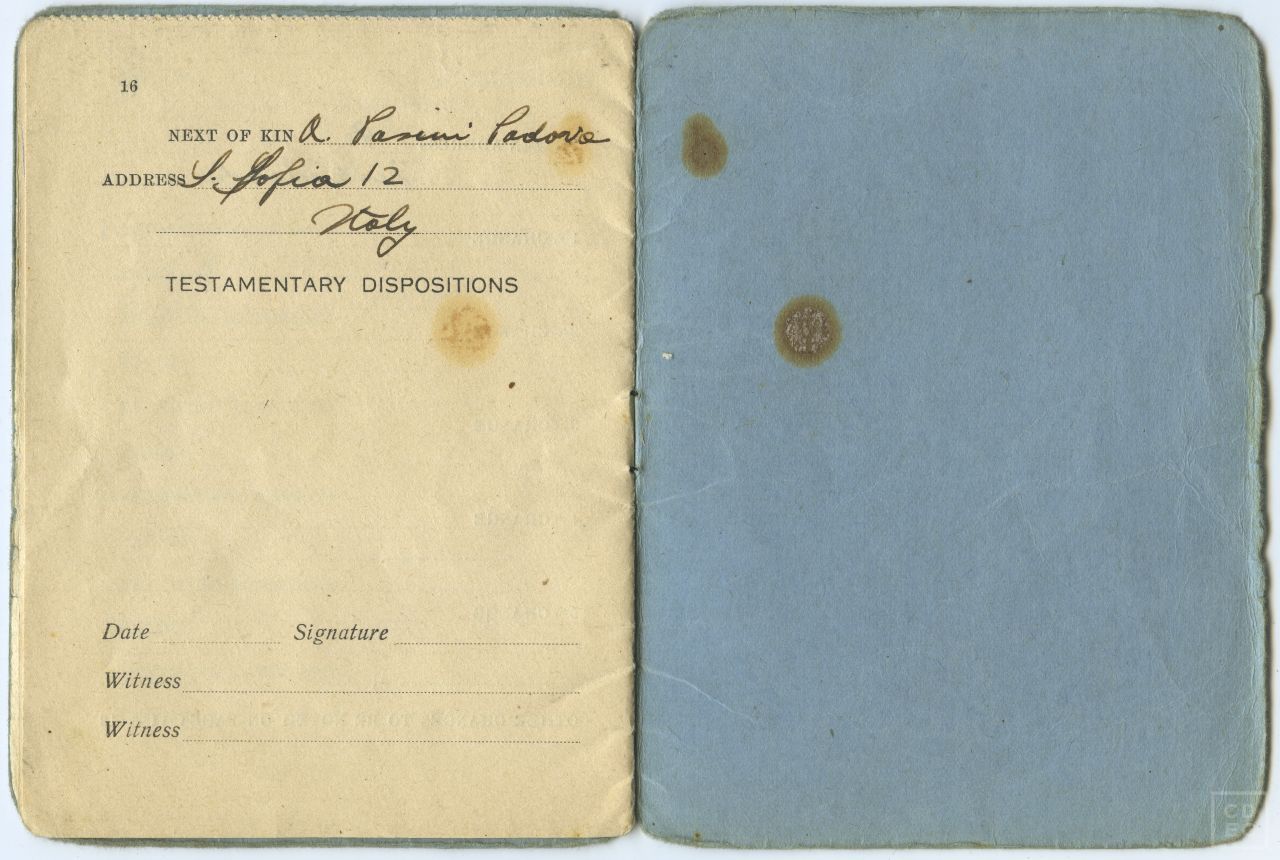 16
NEXT OF KIN A. Pasini Padova
ADDRESS S. Sofia 12
Italy
TESTAMENTARY DISPOSITIONS
Date Signature
Witness
Witness